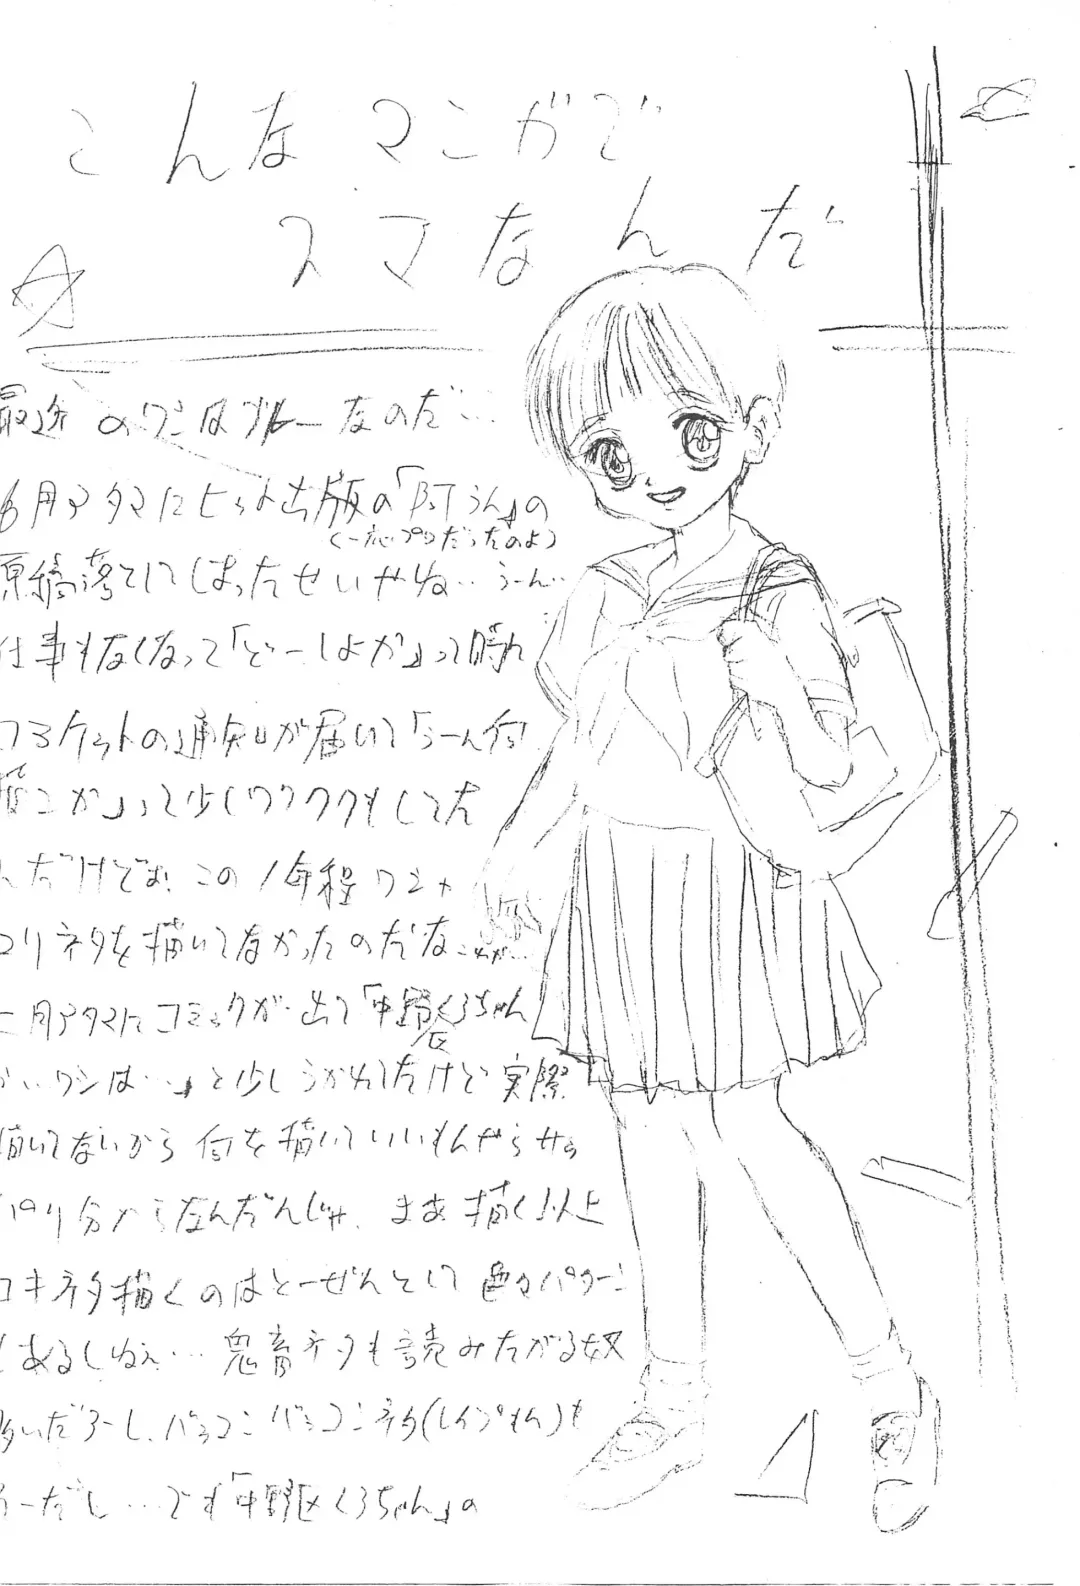 こんなマンガで
スマなんだ
最近のワシはブルーなのだ…
6月アタマにヒット出版の「阿うん」の
(一応プロだったのよ)
原稿落としてしまったせいやね…うーん…
仕事もなくなって「どーしよか」って時に
コミケットの通知が届いて「うーん何
描こか」って少しワクワクもしてた
んだけどな。この1年程ワシ
ロリネタを描いてなかったのだな
二月アタマにコミックが出て「中野区くろちゃん
かいワシは…」と少しうかれてたけど実際
描いてないから何を描いていいもんやら
分からなんだんじゃ、まあ描く以上
ネタ描くのはとーぜんとして色々パターン
もあるしねぇ…鬼畜ネタも読みたがる奴
多いだろーし、
そーだし…です「中野区くろちゃん」の